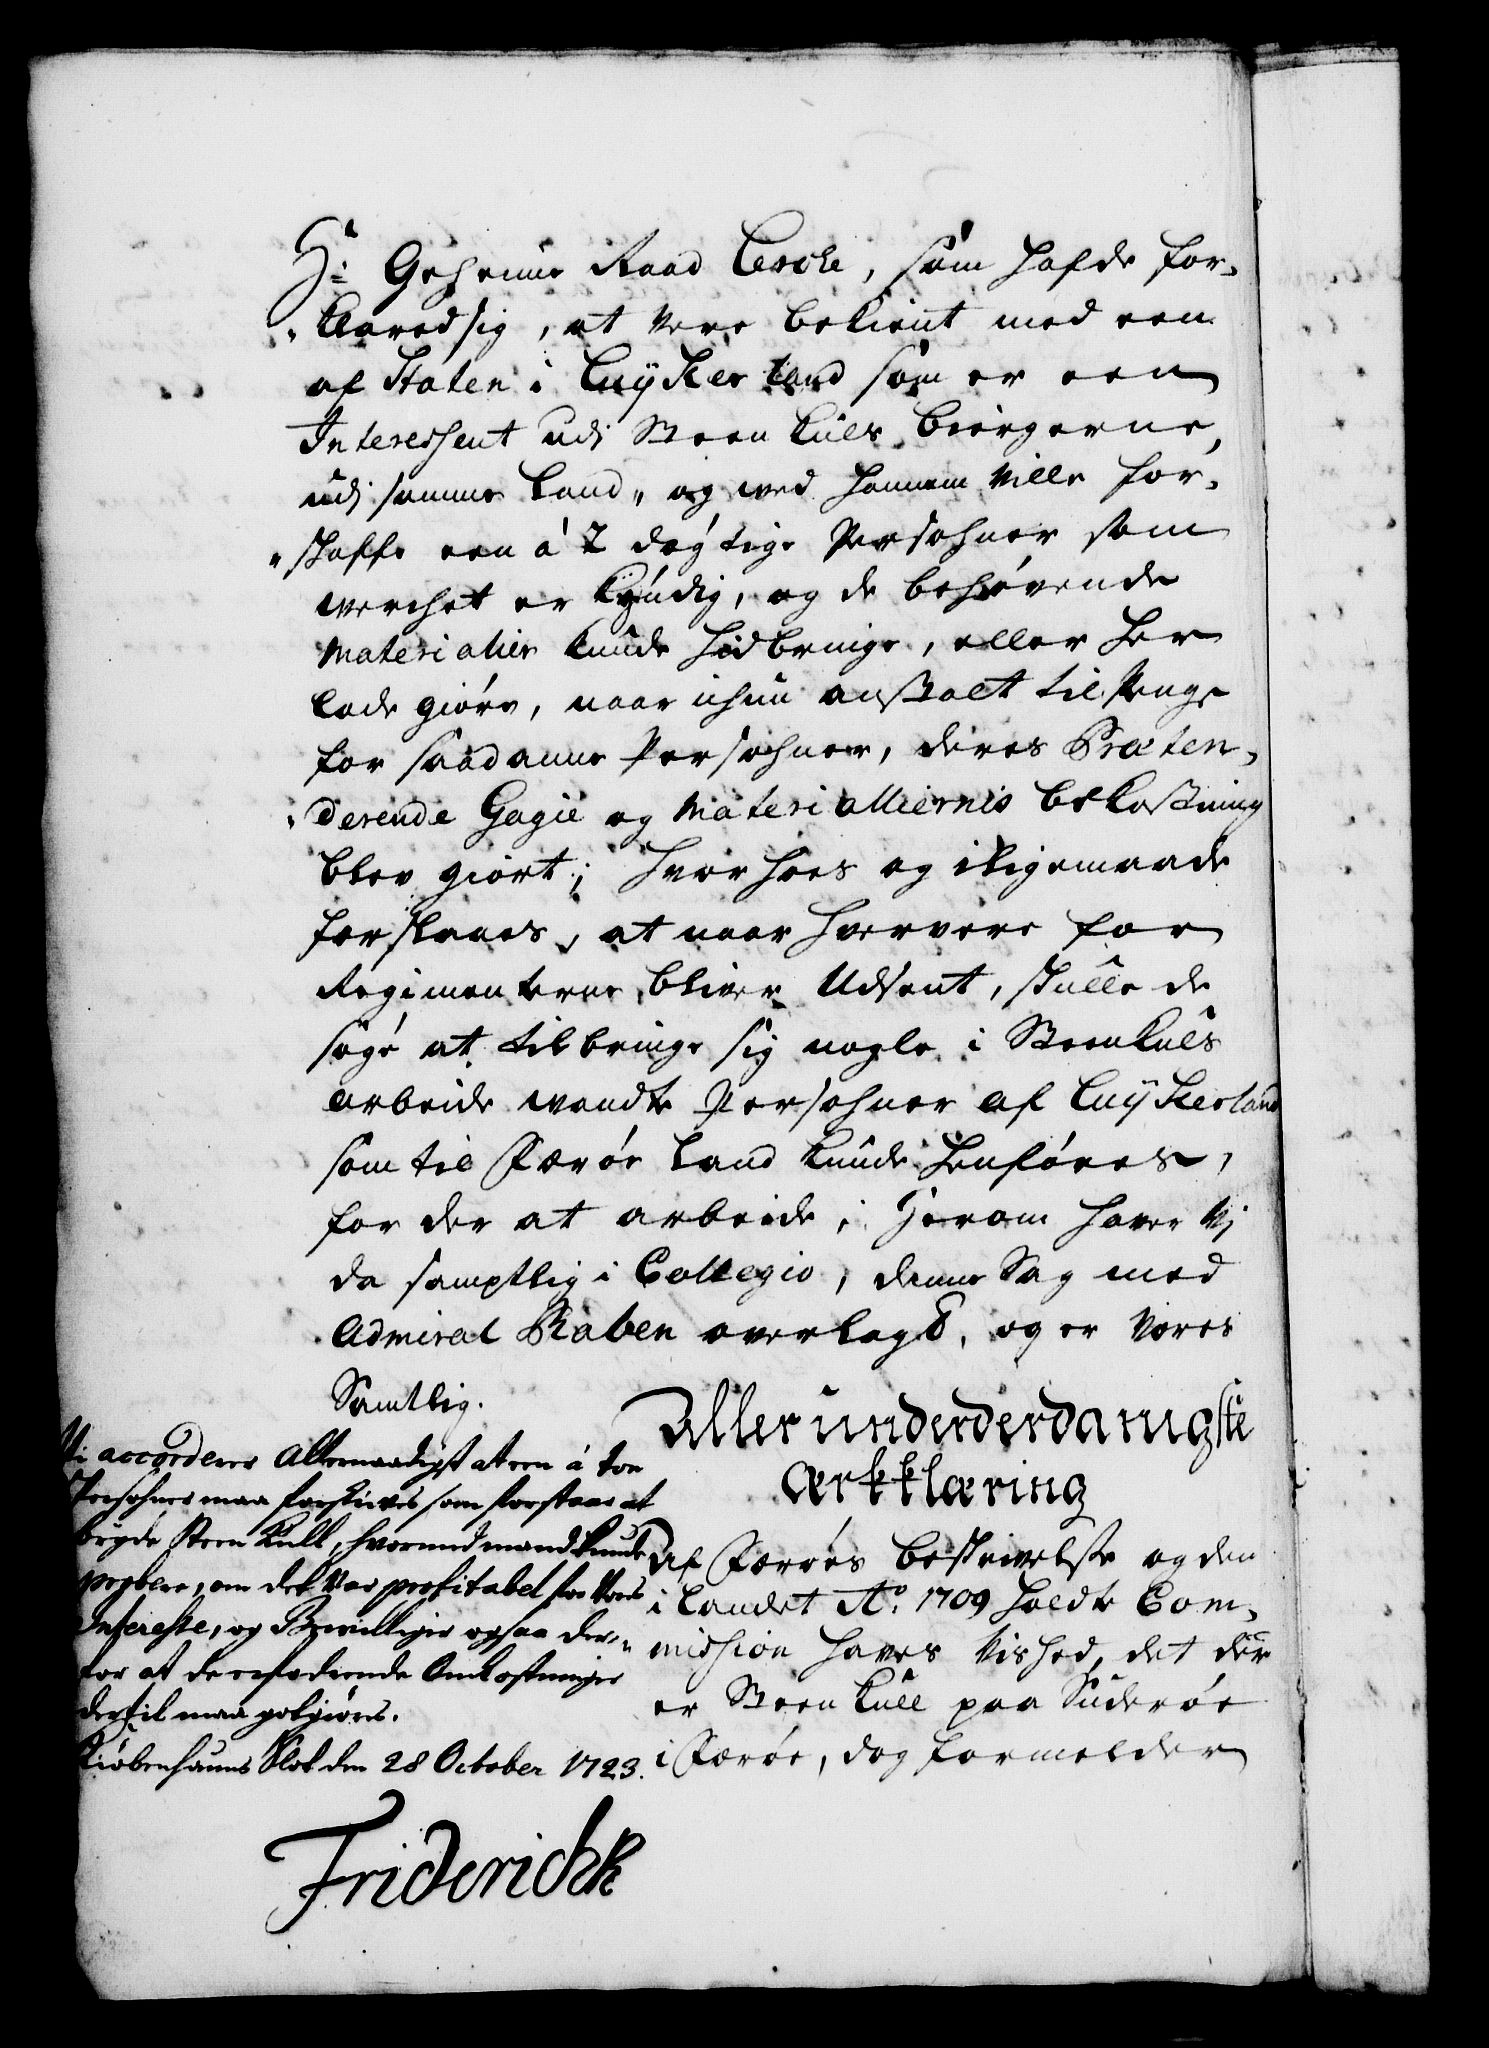 Hr: Geheime Raad Lerche, som hafde for-
klaredsig, at vere bekient med een
af Staten i Luykerland som er een
Interessent udi Steen Kuls biergerne,
udi samme land, og ved hannem ville for-
skaffe een á 2 dÿgtige Persohner som
verchet er kÿndig, og de behøvende
Materialier kunde hidbringe, eller her
lade giøre, naar ichun anstalt til Penge
for saadanne Persohner, deres Præten-
derende Gagie og Materialliernis bekostning
blev giort; hvor hoes og iligemaade
forslaaes, at naar hververe for
Regimenterne bliver Udsent, skulle de
søge at tilbringe sig nogle i Steenkuls
arbeide vandte Persohner af Luykerland
som til Færøe land kunde henføres,
for der at arbeide; herom haver Vj
da samptlig i Collegio, denne Sag med
Admiral Raben overlagt, og er vores
Samtlig.
Allerunderderdanigste
Ærkklæring
Af Færrøs beskrivelse og den
i landet Ao. 1709 holdte Com-
mission haves Vished, det der
er Steen Kull paa Suderøe
i Færøe, dog formelder
Vi accorderer Allernaadigst at een á toe
Persohner maa forskrives som forstaar at
brÿde Steen Kull, hvormed mand kunde
probere, om det var profitabel for Vores
Interesse, og Bevilliger ogsaa der-
for at de erfodrende Omkostninger
dertil maa golgiøres.
Kiøbenhauns Slot den 28 October 1723.
FriderichR